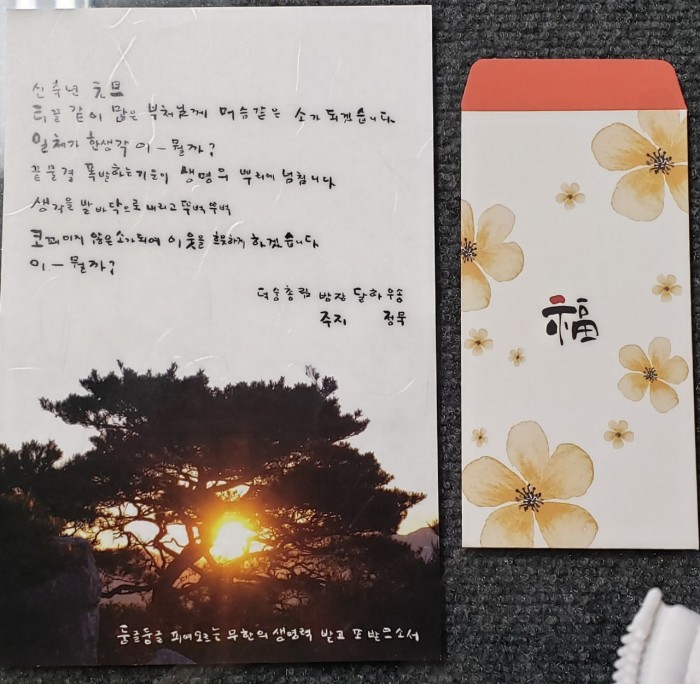 신축년 元旦
티끌같이 많은 부처님께 머슴같은 소가 되겠습니다
일체가 한생각 이 - 뭘까?
끝물결 폭발하는 기운이 생명의 뿌리에 넘칩니다
생각을 발바닥으로 내리고 뚜벅뚜벅
코꿰이지 않은 소가되어 이웃을 흐뭇하게 하겠습니다
이 - 뭘까?
덕숭총림 방장 달하우송
주지 정묵
둥글둥글 피어오르는 무한의 생명력 받고 또 받으소서
福